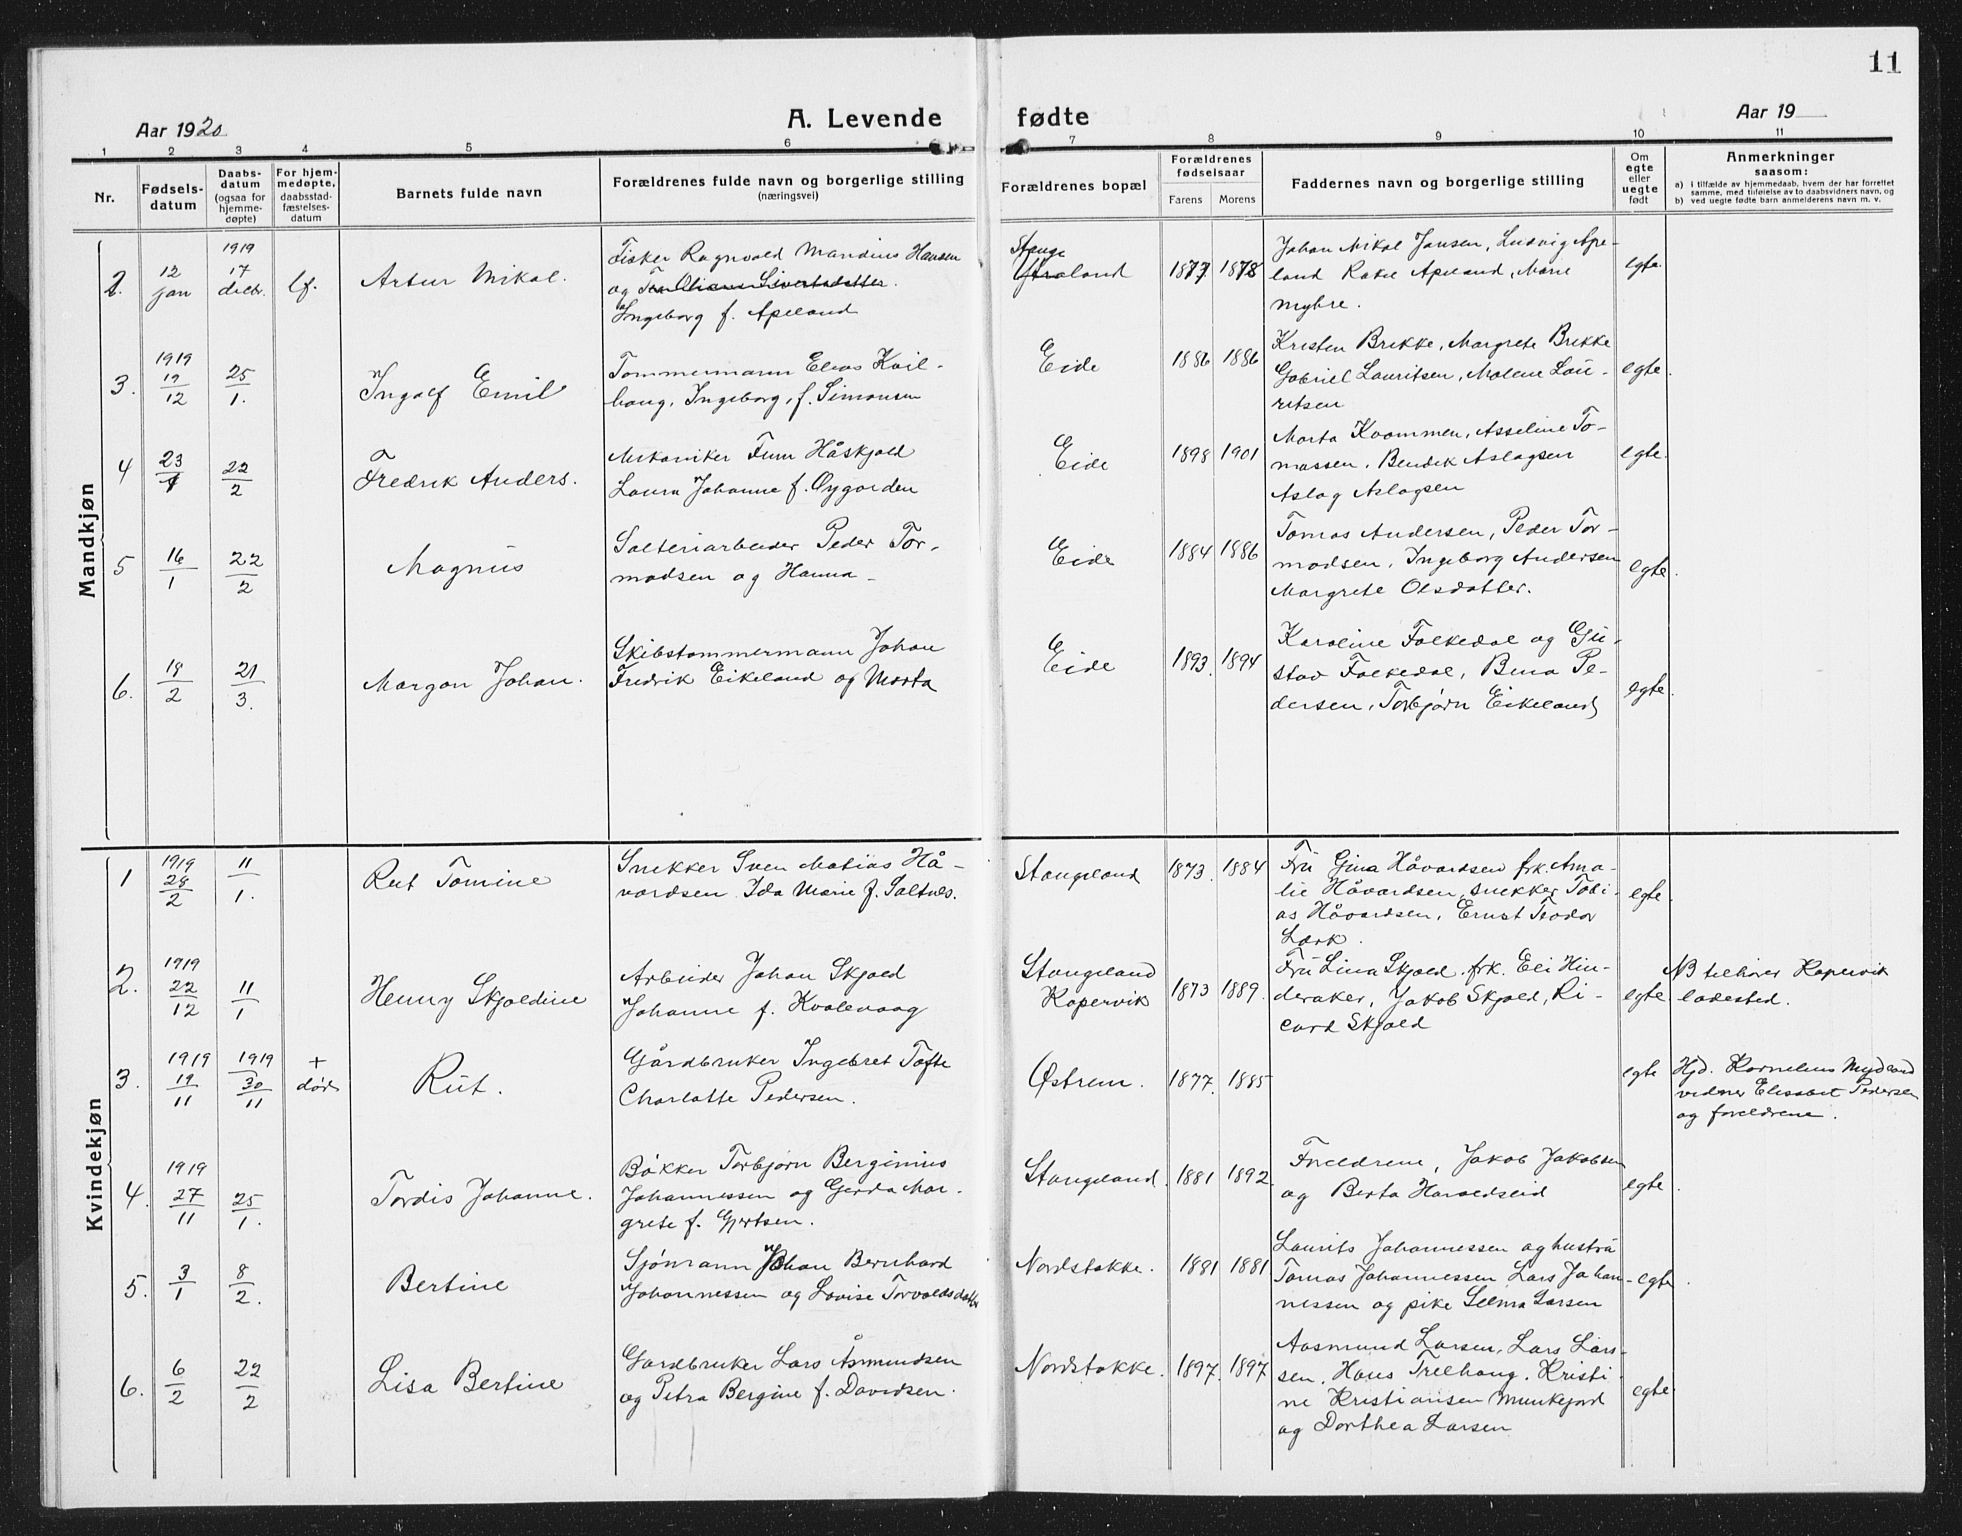 11
Aar 1920
A. Levende fødte
Aar 19
1 2 3 4 5 6 7 8 9 10 11
Nr.
Fødsels-
datum
Daabs-
datum
(ogsaa for
hjemme-
døpte)
For hjem-
medøpte,
daabsstad-
fæstelses-
datum
Barnets fulde navn
Forældrenes fulde navn og borgerlige stilling
(næringsvei)
Forældrenes bopæl
Forældrenes
fødselsaar
Farens Morens
Faddernes navn og borgerlige stilling
Om
egte
eller
uegte
født
Anmerkninger
saasom:
a) i tilfælde av hjemmedaab, hvem der har forrettet
samme, med tilføielse av to daabsvidners navn, og
b) ved uegte fødte barn anmelderens navn m. v.
Mandkjøn
2.
12
jan
1919
17
decbr.
Artur Mikal.
Fisker Ragnvald Mandius Hansen
og Oliane Sivertsdatter.
Ingeborg f. Apeland
Stange
land
1877 1878
Johan Mikal Jansen, Ludvig Ape-
land Rakel Apeland, Marie
myhre.
egte.
3.
1919
19
12
25
1.
Ingolf Emil
Tømmermann Elias Kvil-
haug, Ingeborg, f. Simonsen
Eide
1886 1886
Kristen Brekke, Margrete Brekke
Gabriel Lauritsen, Malene Lau-
ritsen
egte.
4
23
1
22
2
Fredrik Anders.
Mekaniker Finn Håskjold
Laura Johanne f. Øygarden
Eide
1898 1901
Marta Kvammen, Asseline To-
massen, Bendik Aslagsen
Aslag Aslagsen
egte.
5
16
1
22
2
Magnus
Salteriarbeider Peder Tor-
madsen og Hanna-
Eide
1884 1886
Tomas Andersen, Peder Tor-
madsen, Ingeborg Andersen
Margrete Olsdatter.
egte.
6.
18
2
21
3.
Margon Johan.
Skibstømmermann Johan
Fredrik Eikeland og Marta
Eide
1893. 1894
Karoline Falkedal og Gu-
stav Falkedal, Bina Pe-
dersen, Torbjørn Eikeland
egte.
Kvindekjøn
1
1919
28
2
11
1.
Rut Tomine
Snekker Sven Matias Hå-
vardsen Ida Marie f. Saltnes.
Stangeland
1873. 1884
Fru Gina Håvardsen frk. Ama-
lie Håvardsen, snekker Tobi-
as Håvardsen, Ernst Teodor
Lærk.
egte.
2.
1919
22
12
11
1
Henny Skjoldine
Arbeider Johan Skjold
Johanne f. Kvalevaag
Stangeland
Kopervik
1873 1889.
Fru Lina Skjold. frk. Eli Hin-
deraker, Jakob Skjold, Ri-
card Skjold
egte.
NB tilhører Kopervik
ladested.
3.
1919
19
11
1919
30
11
+
død
Rut.
Gårdbruker Ingebret Tofte
Charlotte Pedersen.
Østrem.
1877. 1885
egte
Hjd. Kornelius Mydland
vidner Elisabet Pedersen
og foreldrene.
4.
1919
27
11
25
1.
Tordis Johanne.
Bøkker Torbjørn Berginius
Johannessen og Gerda Mar-
grete f. Gjertsen.
Stangeland.
1881 1892
Foreldrene, Jakob Jakobsen
og Berta Haraldseid
egte.
5.
3
1
8
2.
Bertine
Sjømann Johan Bernhard
Johannessen og Lovise Torvaldsdatter
Nordstokke.
1881 1881
Laurits Johannessen og hustru
Tomas Johannessen, Lars Johan-
nessen og pike Selma Larsen
egte.
6.
6
2
22
2
Lisa Bertine
Gardbruker Lars Åsmundsen
og Petra Bergine f. Davidsen.
Nordstokke.
1897. 1897
Aasmund Larsen, Lars Lars-
sen, Hans Trelhaug, Kristi-
ne Kristiansen Munkejord
og Dorthea Larsen
egte.